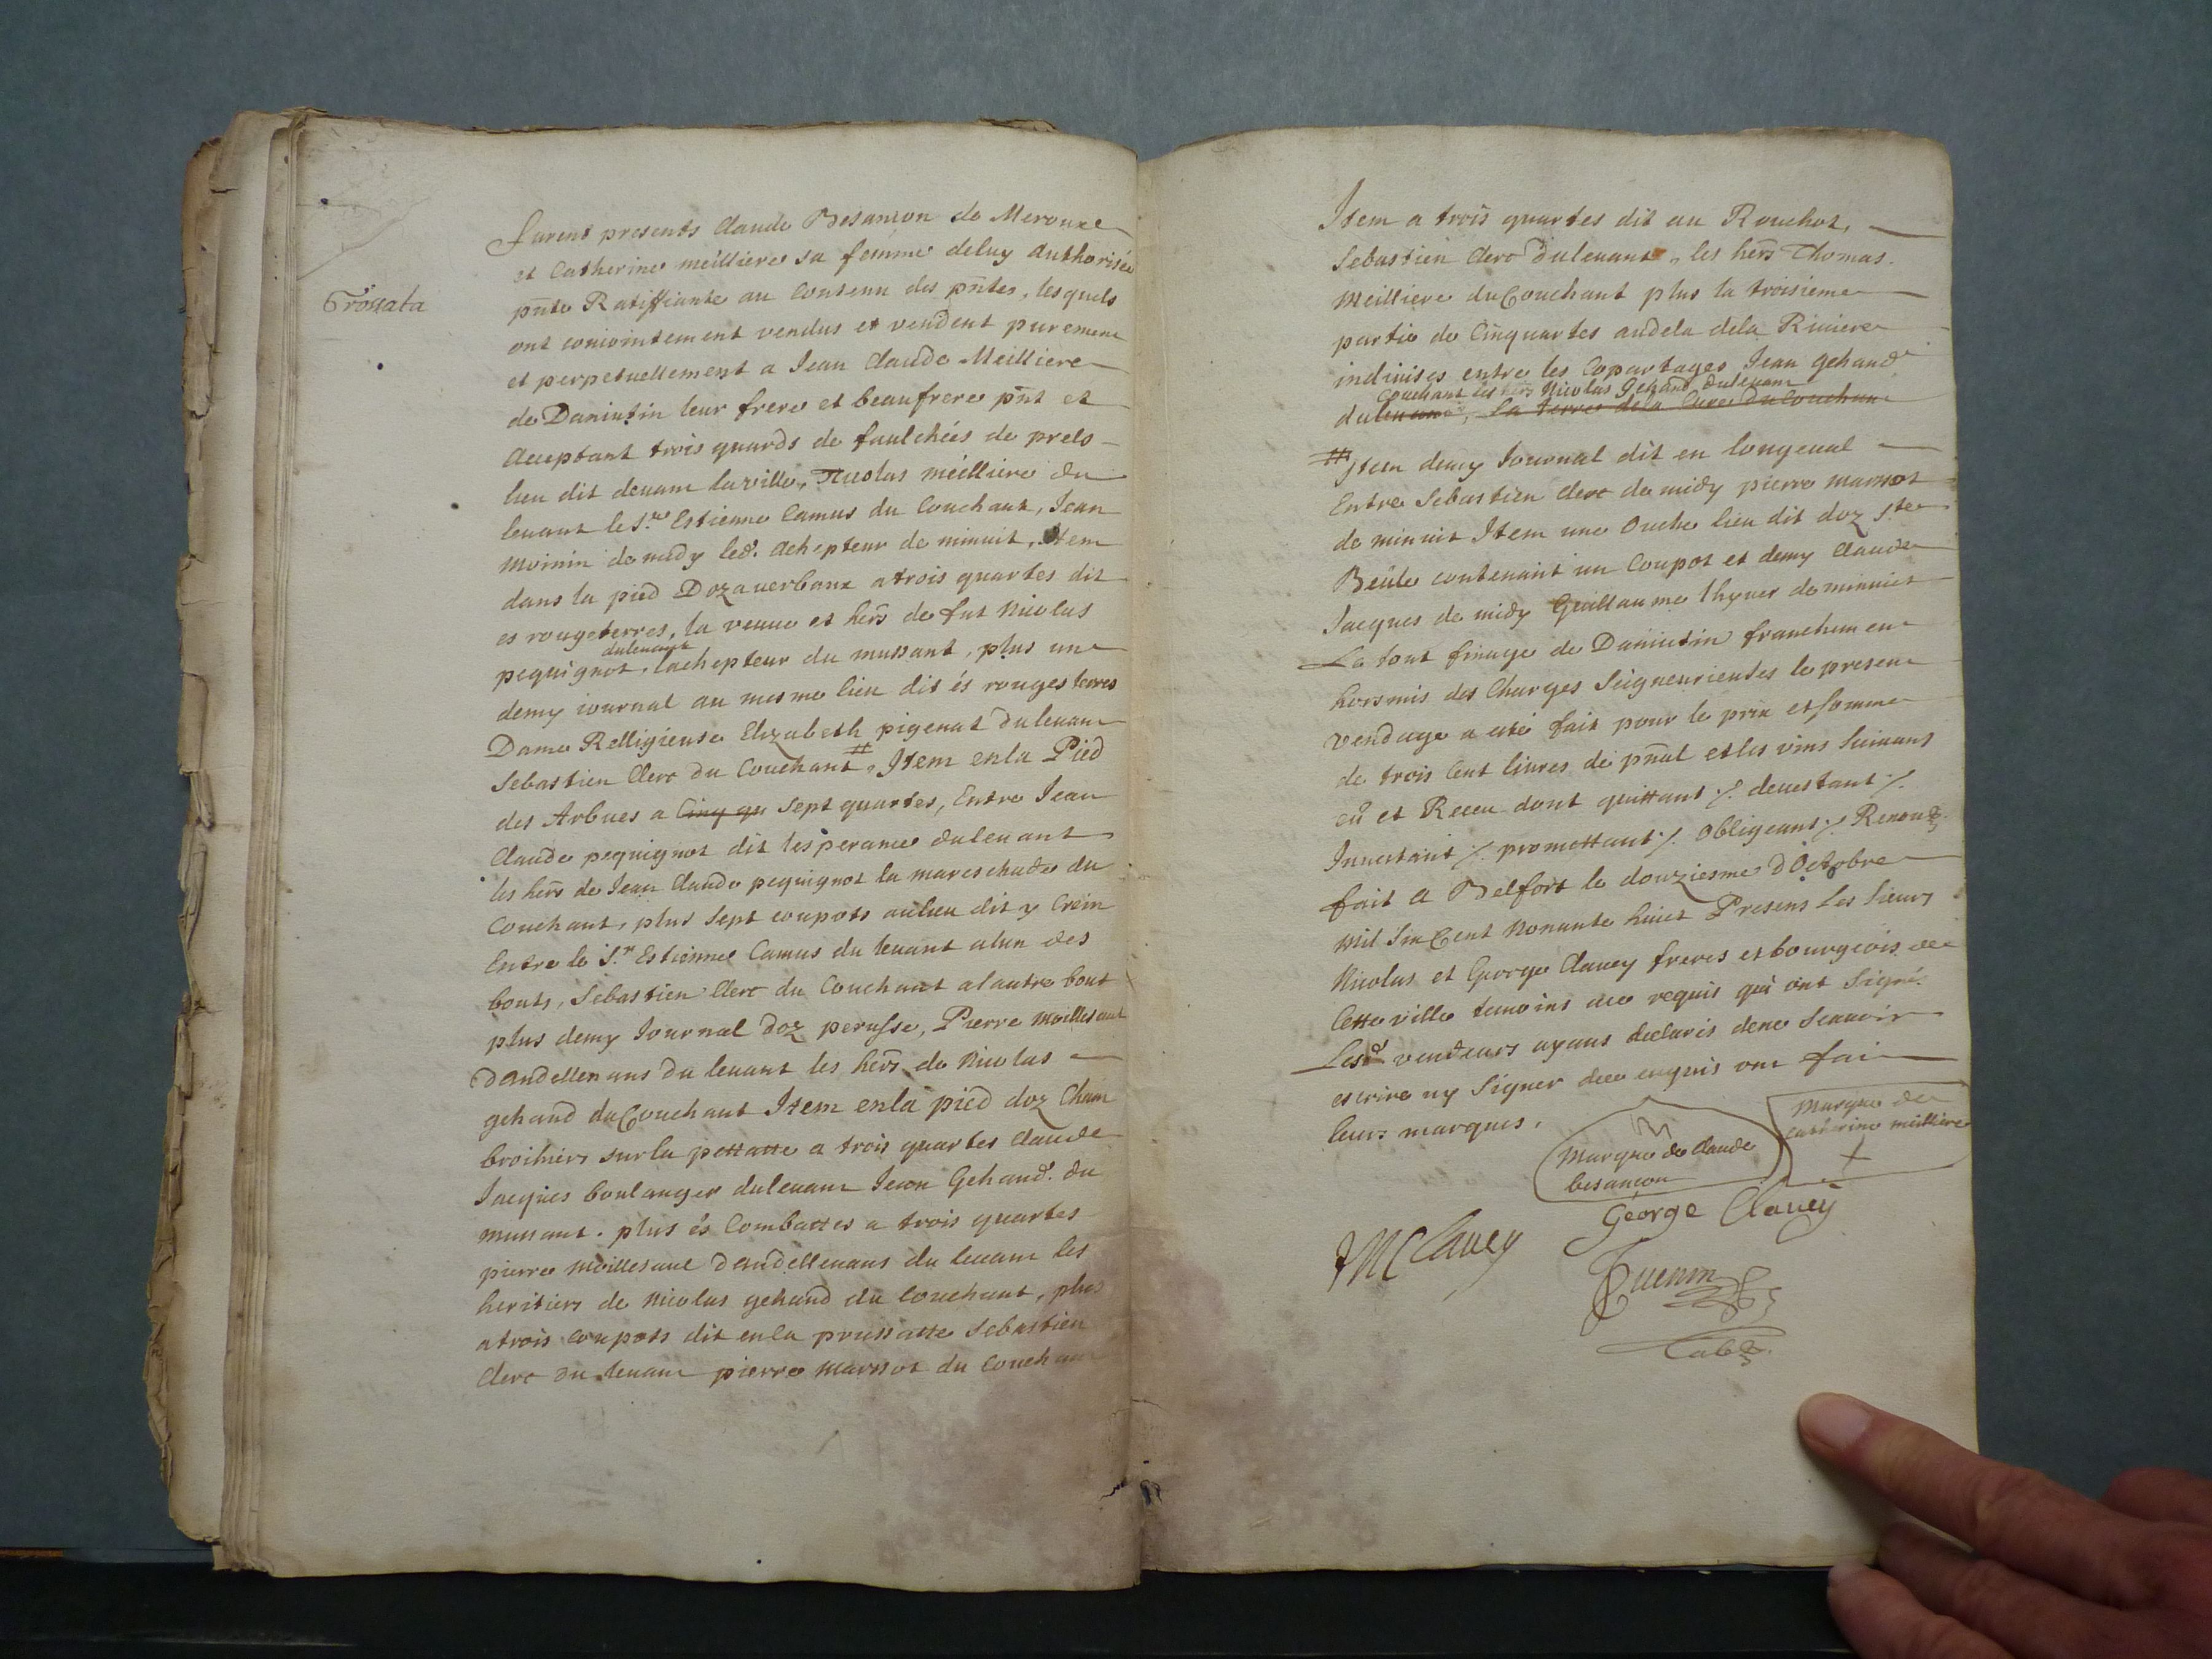 Grossata
furent presents Claude Besancon de Meroux
et Catherine meilliere sa femme deluy Authorisée
pnte Ratiffiante au Contenu des pntes, lesquels
ont conioinctement vendus et vendent purement
et perpetuellement a Jean Claude Meilliere
de Daniutin leur frere et beaufrere pnt et
Acceptant trois quards de faulchées de prels
lieu dit deuant la ville, Nicolas meilliere du
leuant le Sr Estienne Camus du Couchant, Jean
Moinin de midy led. Achepteur de minuit, Item
dans la pied Dozauerbaux a trois quartes dit
es rougeterres, la veuue et hers de fut Nicolas
duleuant
pequignot, lachepteur du mussant, plus une
demy iournal au mesme lieu dit és rouges terres
Dame Relligieuse Elizabeth pigenat duleuant
Sebastien Clerc du Couchant # Item enla Pied
des Arbues a Cinq qu sept quartes, Entre Jean
Claude pequignot dit lesperance duleuant
les hers de Jean Claude pequignot la mareschade du
Couchant, plus sept coupots aulieu dit y Crein
Entre le Sr Estienne Camus du leuant alun des
bouts, Sebastien Clerc du Couchant alautre bout
plus demy Journal doz perusse, Pierre Moilleseaul
Dandellenans du leuant les hers de Nicolas
gehand du Couchant Item enla pied doz Cham
broihiers sur la pettatte a trois quartes Claude
Jacques boulanger duleuant Jean Gehand du
mussant. plus és Combattes a trois quartes
pierre Moilleseaul Dandellenans du leuant les
heritiers de Nicolas gehand du Couchant, plus
a trois coupots dit enla prussatte Sebastien
Clerc du leuant pierre Marssot du Couchant
Item a trois quartes dit au Rouchot,
Sebastien Clerc duleuant, les hers Thomas
Meilliere du Couchant plus la troisieme
partie de Cinquartes audela dela Riuiere
indiuises entre les Copartages Jean gehand
Couchant les hers Nicolas Gehand duleuant
duleuant, La terre dela Cure du Couchant
# Item demy Journal dit en longeual
Entre Sebastien Clerc de midy pierre marssot
de minuit Item une Ouche lieu dit doz ste
Beule contenant un Coupot et demy Claude
Jacques de midy Guillaume de minuict
Le tout finage de Daniutin franchement
horsmis des Charges Seigneurieuses le present
vendage a esté fait pour le prix et somme
de trois Cent liures de pnal et les vins suiuans
eu et Receu dont quittant ./. deuestant ./.
Inuestant ./. promettant ./. Obligeant ./. Renonc.
fait A Belfort le douziesme d'Octobre
Mil Six Cent Nonante huict Presens les Sieurs
Nicolas et George Clauey freres et bourgeois de
Cette ville temoins ace requis qui ont Signé.
Lesd. vendeurs ayans declaris dene Scauoir
escrire ny Signer dece enquis ont fait
leurs marques.
Marque de Claude
besancon
Marque de
Catherine meilliere
George Clauey
Clauey
Cuenin
Tab.